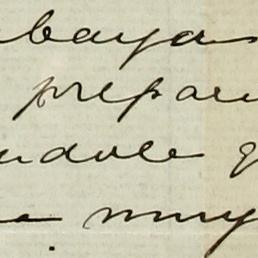 bayas
prepar
udole q
muy